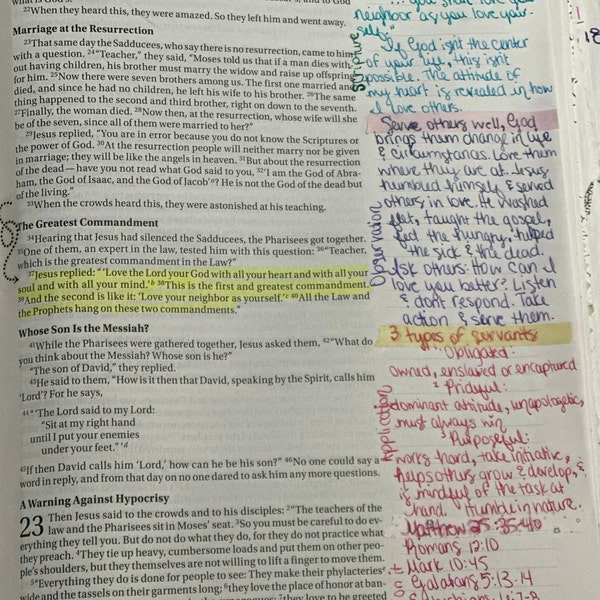 what is God's."
22When they heard this, they were amazed. So they left him and went away.
Marriage at the Resurrection
23That same day the Sadducees, who say there is no resurrection, came to him
with a question. 24"Teacher," they said, "Moses told us that if a man dies with-
out having children, his brother must marry the widow and raise up offspring
for him. 25Now there were seven brothers among us. The first one married and
died, and since he had no children, he left his wife to his brother. 26The same
thing happened to the second and third brother, right on down to the seventh.
27Finally, the woman died. 28Now then, at the resurrection, whose wife will she
be of the seven, since all of them were married to her?"
29Jesus replied, "You are in error because you do not know the Scriptures or
the power of God. 30At the resurrection people will neither marry nor be given
in marriage; they will be like the angels in heaven. 31But about the resurrection
of the dead—have you not read what God said to you, 32'I am the God of Abra-
ham, the God of Isaac, and the God of Jacob'a? He is not the God of the dead but
of the living."
33When the crowds heard this, they were astonished at his teaching.
The Greatest Commandment
34Hearing that Jesus had silenced the Sadducees, the Pharisees got together.
35One of them, an expert in the law, tested him with this question: 36"Teacher,
which is the greatest commandment in the Law?"
37Jesus replied: "'Love the Lord your God with all your heart and with all your
soul and with all your mind.'b 38This is the first and greatest commandment.
39And the second is like it: 'Love your neighbor as yourself.'c 40All the Law and
the Prophets hang on these two commandments."
Whose Son Is the Messiah?
41While the Pharisees were gathered together, Jesus asked them, 42"What do
you think about the Messiah? Whose son is he?"
"The son of David," they replied.
43He said to them, "How is it then that David, speaking by the Spirit, calls him
'Lord'? For he says,
44"'The Lord said to my Lord:
"Sit at my right hand
until I put your enemies
under your feet."'d
45If then David calls him 'Lord,' how can he be his son?" 46No one could say a
word in reply, and from that day on no one dared to ask him any more questions.
A Warning Against Hypocrisy
23 Then Jesus said to the crowds and to his disciples: 2"The teachers of
the law and the Pharisees sit in Moses' seat. 3So you must be careful to do ev-
erything they tell you. But do not do what they do, for they do not practice what
they preach. 4They tie up heavy, cumbersome loads and put them on other peo-
ple's shoulders, but they themselves are not willing to lift a finger to move them.
5"Everything they do is done for people to see: They make their phylacteries
wide and the tassels on their garments long; 6they love the place of honor at ban-
Scripture
neighbor as you love your-
self."
If God isnt the center
of your life, this isnt
possible. The attitude of
my heart is revealed in how
I love others.
Observation
Serve others well, God
brings them change in life
& circumstances. Love them
where they are at. Jesus
humbled himself & served
others in love. He washed
feet, taught the gospel,
fed the hungry, helped
the sick & the dead.
Ask others: How can I
love you better? Listen
& dont respond. Take
action & serve them.
3 types of servants
Application
Obligated:
owned, enslaved or encaptured
Prideful:
dominant attitude, unapologetic,
must always win
Purposeful:
works hard, take initiative,
helps others grow & develop, &
is mindful of the task at
hand. Humble in nature.
Matthew 25:35-40
Romans 12:10
Mark 10:45
Galatians 5:13-14
18